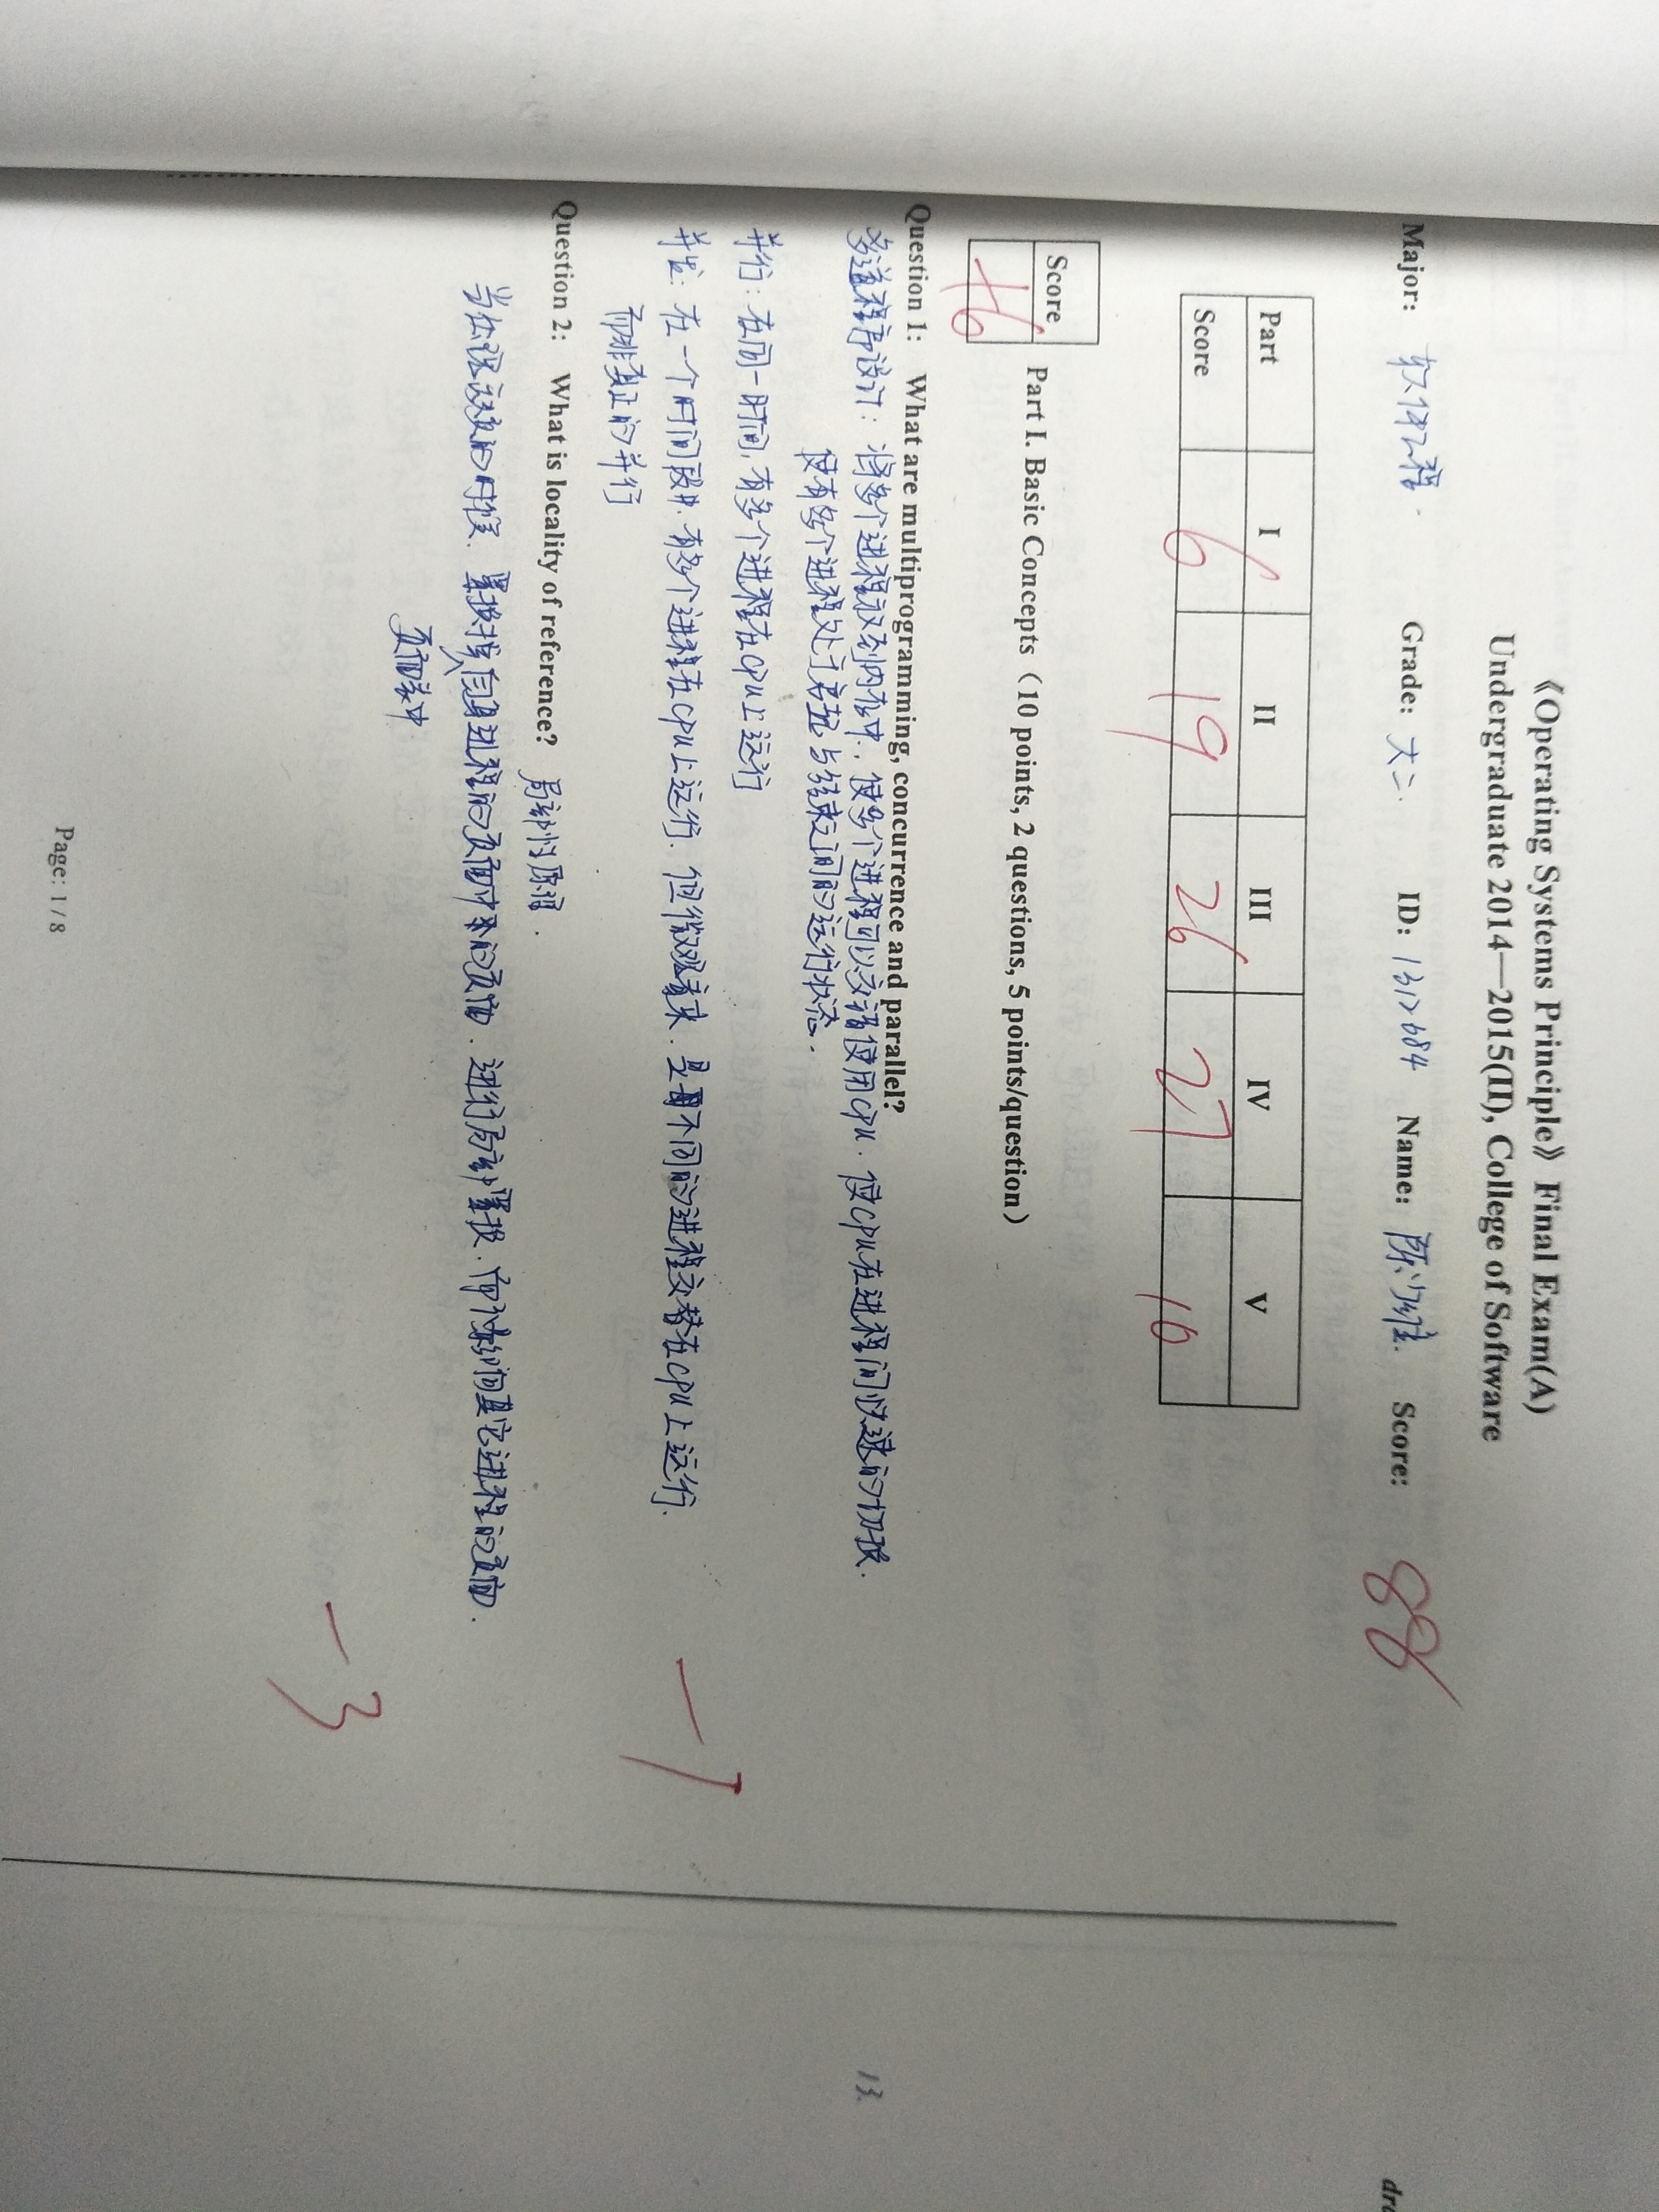 《Operating Systems Principle》 Final Exam(A)
Undergraduate 2014—2015(II), College of Software
Major: 软件工程 Grade: 大二 ID: 1312684 Name: 陈 维 Score: 88
Part I II III IV V
Score 6 19 26 27 10
Score
+6
Part I. Basic Concepts（10 points, 2 questions, 5 points/question）
Question 1: What are multiprogramming, concurrence and parallel?
多道程序设计: 将多个进程放到内存中, 使多个进程可以交错使用CPU. 使CPU在进程间快速的切换.
使有多个进程处于启动与结束之间的运行状态.
并行: 在同一时间, 有多个进程在CPU上运行
并发: 在一个时间段中. 有多个进程在CPU上运行. 但微观看来. 是不同的进程交替在CPU上运行.
而非真正的并行
-1
Question 2: What is locality of reference? 局部性原理.
当出现缺页的时候. 置换掉自身进程的页面中的页面. 进行局部置换. 而不影响其它进程的页面.
页面表中
-3
Page: 1 / 8
13.